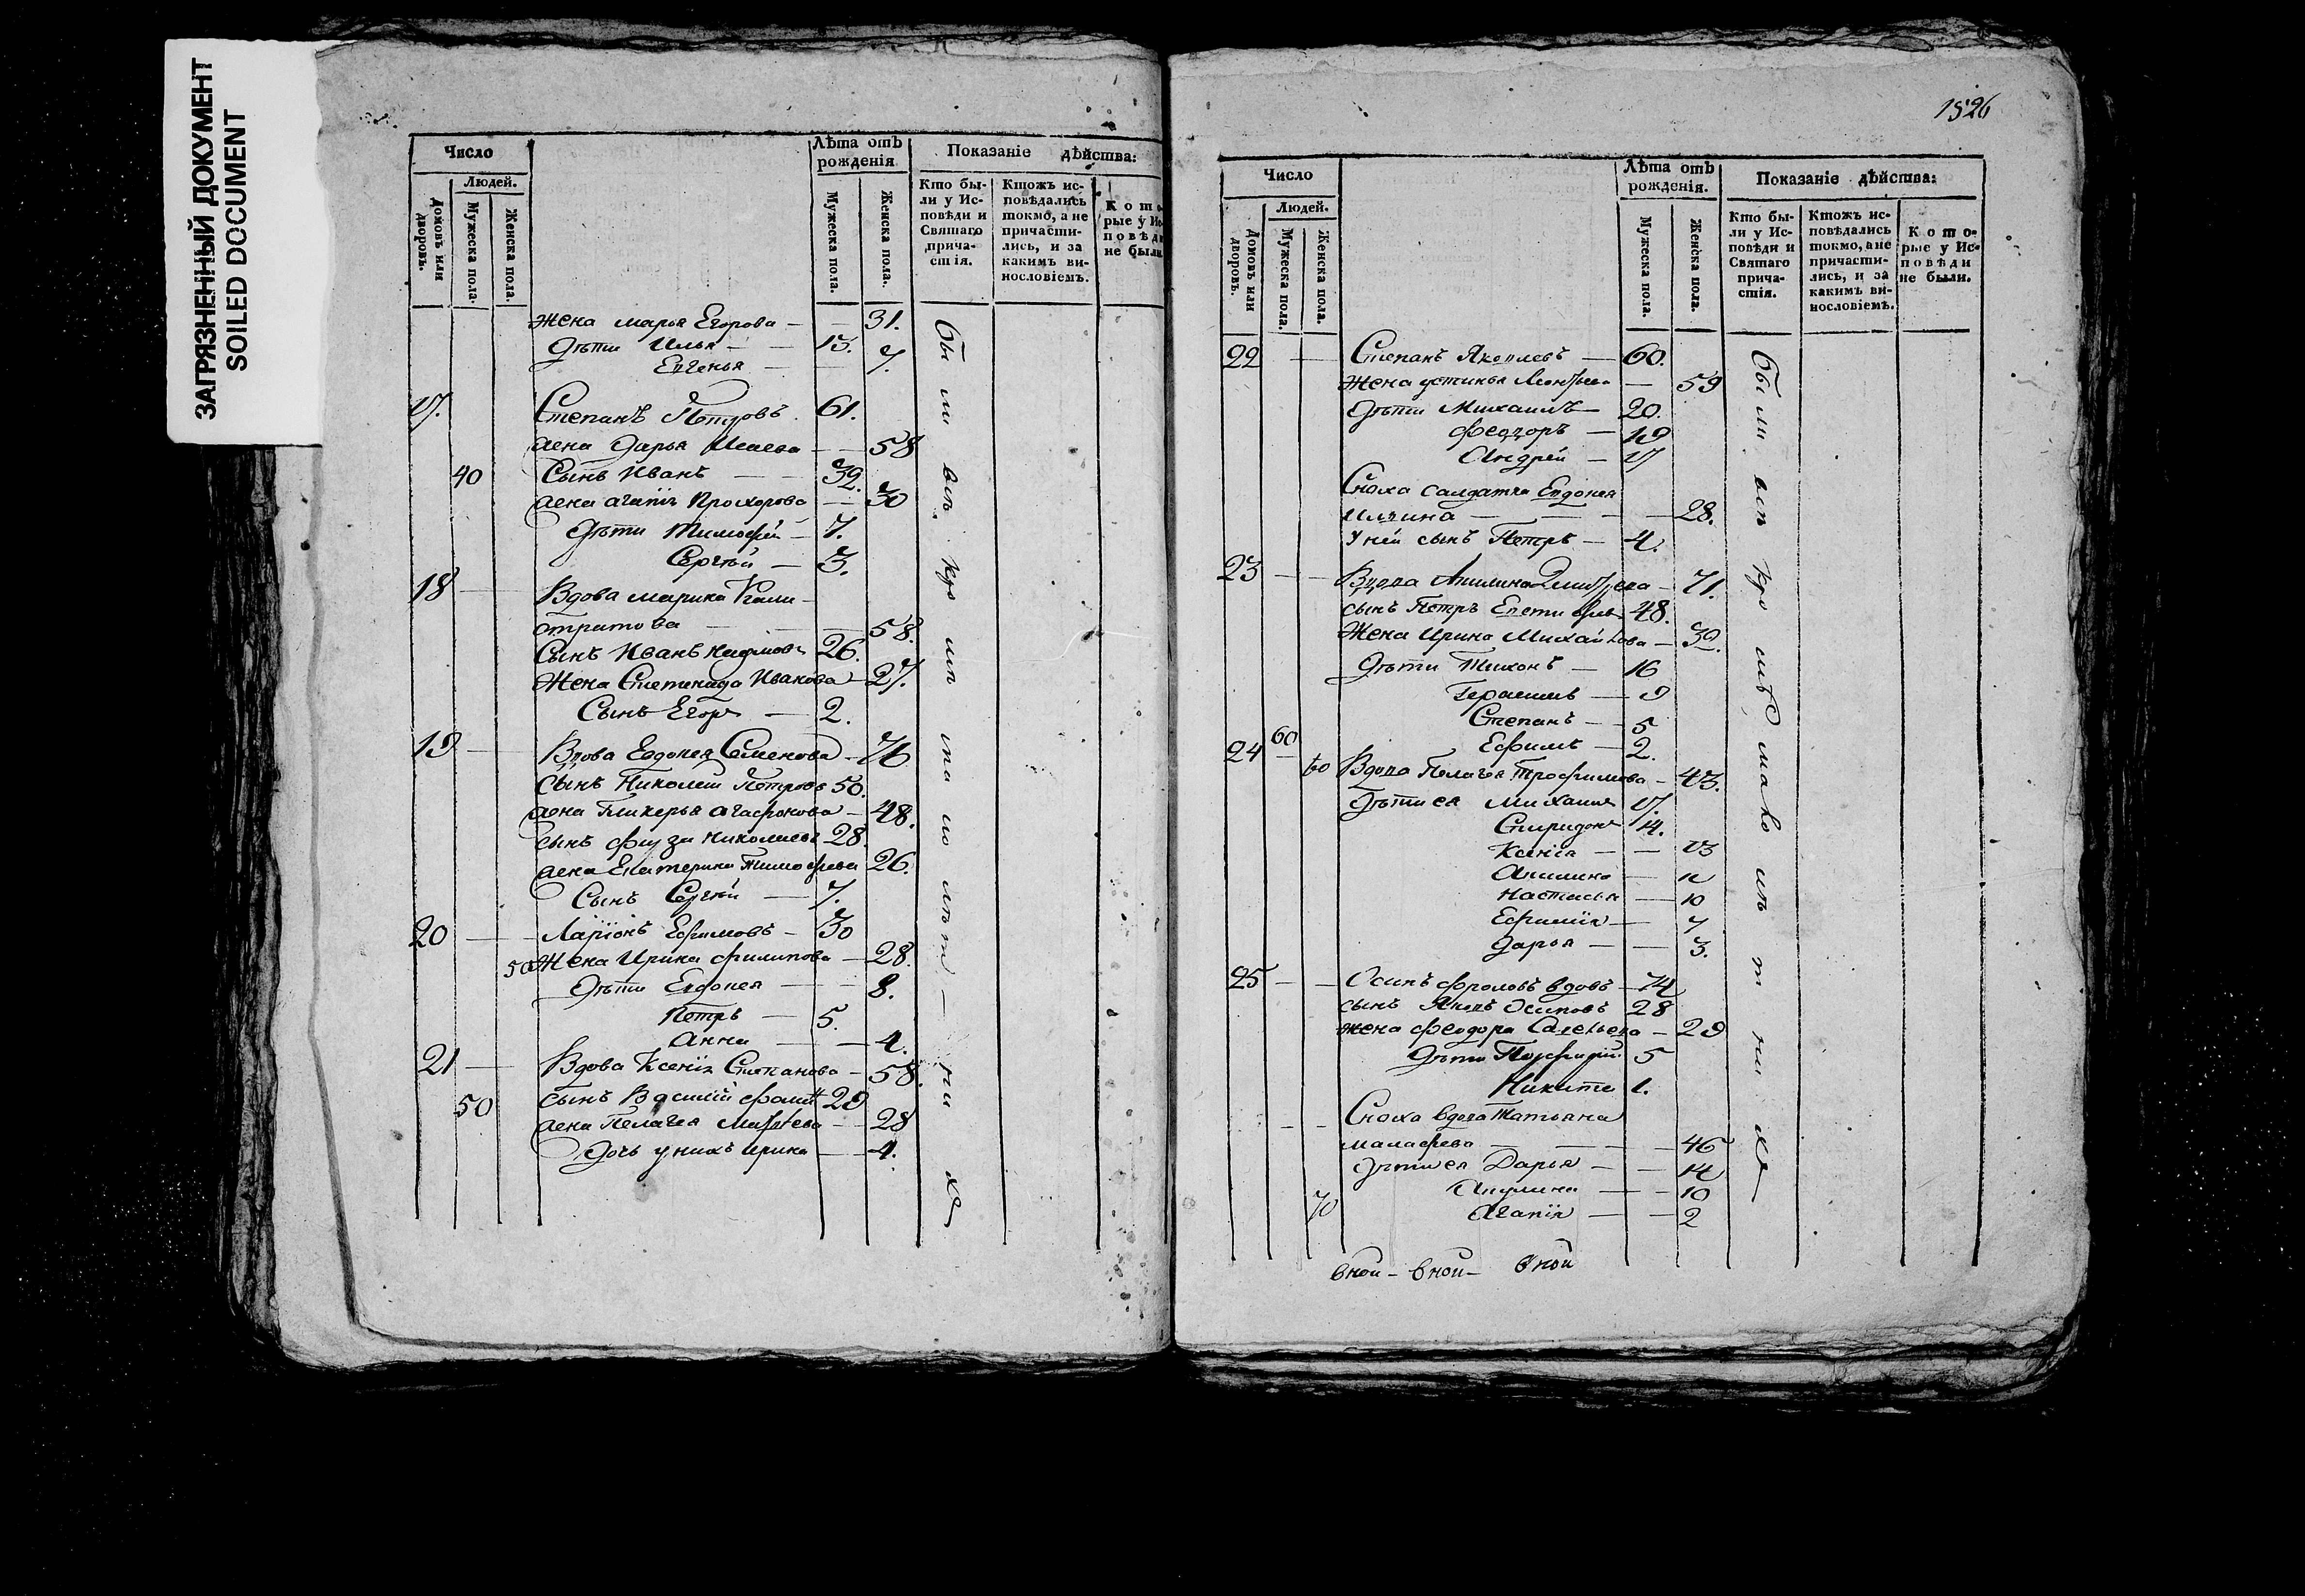 ЗАГРЯЗНЕННЫЙ ДОКУМЕНТ
SOILED DOCUMENT
Число
Людей.
Домовъ или дворовъ.
Мужеска пола.
Женска пола.
Лѣта отъ рожденія
Мужеска пола.
Женска пола.
Показаніе дѣйства:
Кто были у Исповѣди и Святаго причастія.
Ктожъ исповѣдались токмо, а не причастились, и за какимъ винословіемъ.
Которые у Исповѣди не были.
Жена марья Егорова — — 31.
Дѣти Илья — — 13.
Евгенья — — 7.
17. Степанъ Петровъ 61.
жена Дарья Исаева — — 58
40 Сынъ Иванъ — — 32.
жена агапія Прохорова — 30
Дѣти Тимофей — 7.
Сергѣй — 3.
18 — Вдова марина
58.
Сынъ Иванъ 26.
Жена Степанида Иванова — 27.
Сынъ Егоръ — 2.
19 — Вдова Евдокея Семенова —
сынъ Николай Петровъ 50.
жена Гликерья агафонова — 48.
сынъ Николаевъ 28.
жена Екатерина Тимофеева 26.
Сынъ Сергѣй — 7.
20 — — Ларіонъ Ефимовъ — 30
50 Жена Ирина филипова — 28.
Дѣти Евдокея — — 8.
Петръ — 5.
Анна — — 4.
21 — Вдова Ксенія Степанова — 58.
50 Сынъ Василій 29
жена Пелагея — — 28
Дочь у нихъ Ирина — — 4.
Были всѣ кро мѣ ма ло лѣт — ни хъ
1526
Число
Людей.
Домовъ или дворовъ.
Мужеска пола.
Женска пола.
Лѣта отъ рожденія.
Мужеска пола.
Женска пола.
Показаніе дѣйства:
Кто были у Исповѣди и Святаго причастія.
Ктожъ исповѣдались токмо, а не причастились, и за какимъ винословіемъ.
Которые у Исповѣди не были.
22 — Степанъ Яковлевъ — 60.
Жена устинья Леонтьева — 59
Дѣти Михаилъ — 20.
феодоръ — 19
Андрей — 17
Сноха салдатка Евдокея
Ильина — — — — 28.
У ней сынъ Петръ — 4.
23 — — Вдова Акилина Дмитрева — 71.
сынъ Петръ 48.
Жена Ирина Михайлова — 32.
Дѣти Тихонъ — 16
Герасимъ — 9
Степанъ — 5
60 Ефимъ — 2.
24 — 60 Вдова Пелагея Трофимова — 43.
Дѣти ея Михаилъ 17.
Спиридонъ 14.
Ксенія — — 13
Акилина —
Настасья — 10
Ефимія — 7
Дарья — — 3.
25 — — Осипъ фроловъ вдовъ — 74
сынъ Яковъ Осиповъ 28
жена феодора Савельева — 29
Дѣти Порфирій 5
Никита 1.
— — Сноха вдова Татьяна
малафеева — — — 46
Дѣти ея Дарья — — 14
Акулина — — 10
70 Агапія — — 2
Были всѣ кро мѣ мало лѣ т ни хъ